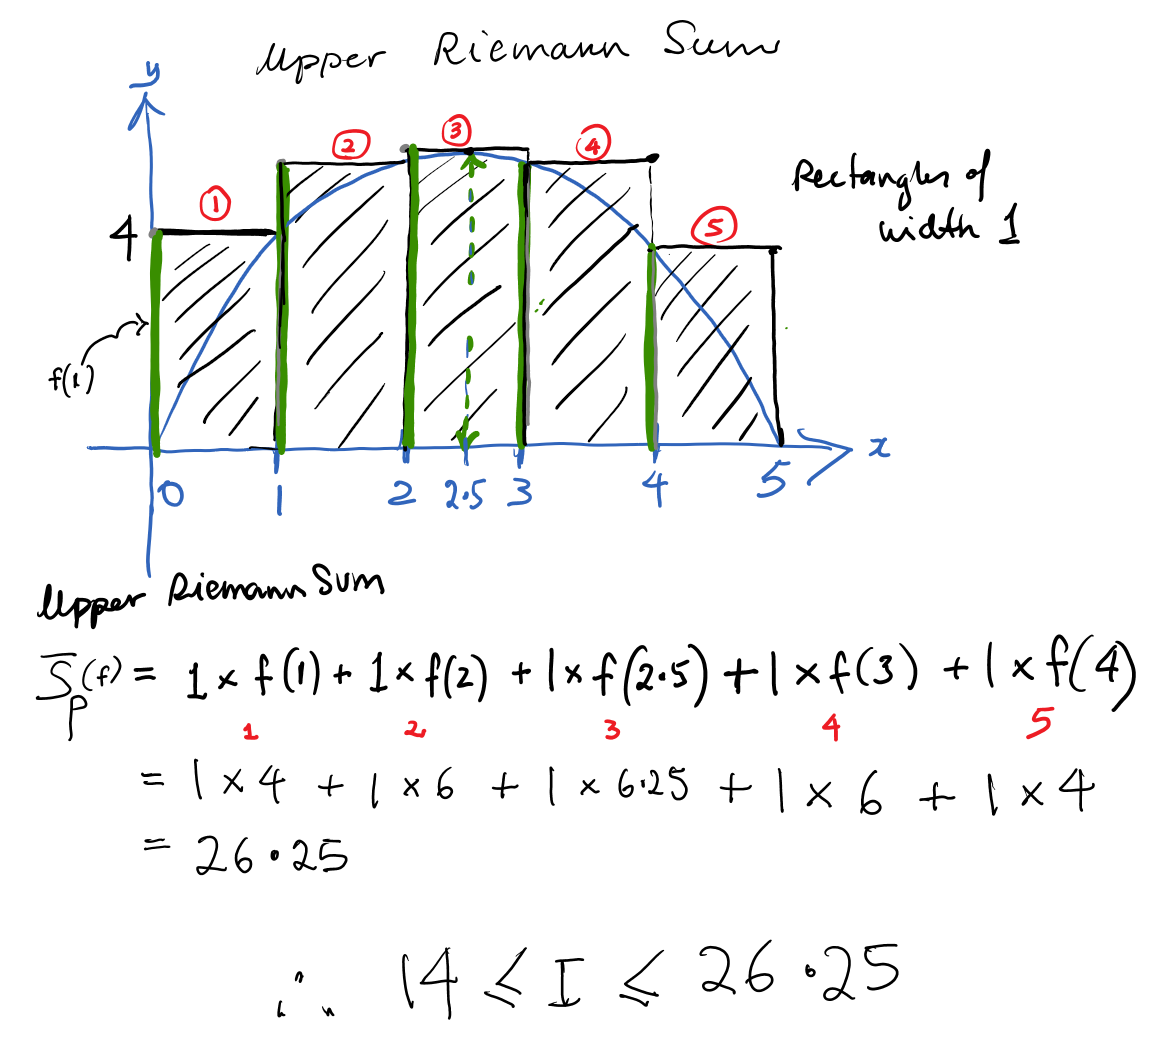 Upper Riemann Sum
y
① ② ③ ④ ⑤
Rectangles of
width 1
4
f(1)
0 1 2 2.5 3 4 5 x
Upper Riemann Sum
S̅_p(f) = 1 × f(1) + 1 × f(2) + 1 × f(2.5) + 1 × f(3) + 1 × f(4)
1 2 3 4 5
= 1 × 4 + 1 × 6 + 1 × 6.25 + 1 × 6 + 1 × 4
= 26.25
∴ 14 ≤ I ≤ 26.25